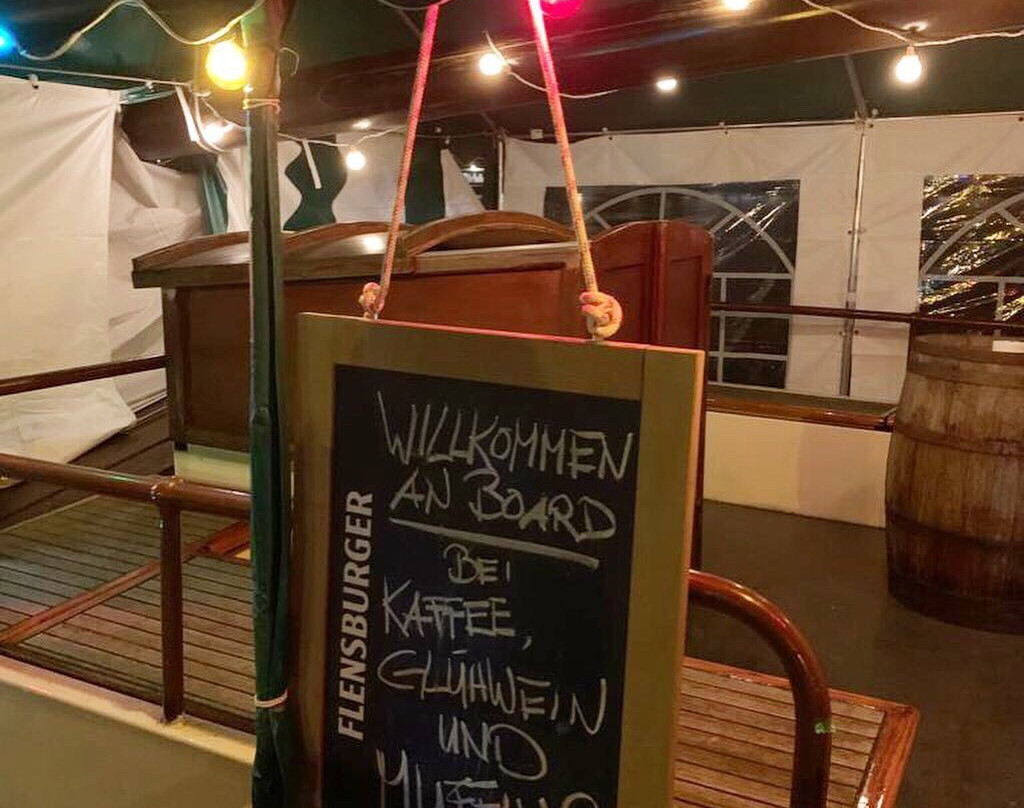 WILLKOMMEN
AN BOARD
BEI
KAFFEE,
GLÜHWEIN
UND
FLENSBURGER